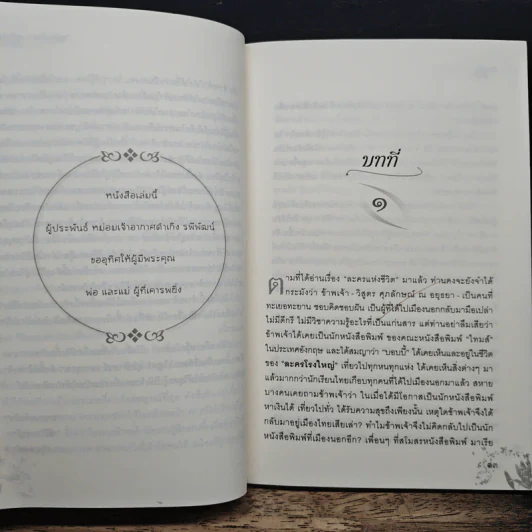 หนังสือเล่มนี้
ผู้ประพันธ์ หม่อมเจ้าอากาศดำเกิง รพีพัฒน์
ขออุทิศให้ผู้มีพระคุณ
พ่อ และแม่ ผู้ที่เคารพยิ่ง
บทที่
๑
ตามที่ได้อ่านเรื่อง "ละครแห่งชีวิต" มาแล้ว ท่านคงจะยังจำได้
กระมังว่า ข้าพเจ้า - วิสูตร ศุภลักษณ์ ณ อยุธยา - เป็นคนที่
ทะเยอทะยาน ชอบคิดชอบฝัน เป็นผู้ที่ได้ไปเมืองนอกกลับมามือเปล่า
ไม่มีดีกรี ไม่มีวิชาความรู้อะไรที่เป็นแก่นสาร แต่ท่านอย่าลืมเสียว่า
ข้าพเจ้าได้เคยเป็นนักหนังสือพิมพ์ ของคณะหนังสือพิมพ์ "ไทมส์"
ในประเทศอังกฤษ และได้สมญาว่า "บอบบี้" ได้เคยเห็นและอยู่ในชีวิต
ของ "ละครโรงใหญ่" เที่ยวไปทุกหนทุกแห่ง ได้เคยเห็นสิ่งต่างๆ มา
แล้วมากกว่านักเรียนไทยเกือบทุกคนที่ได้ไปเมืองนอกมาแล้ว สหาย
บางคนเคยถามข้าพเจ้าว่า ในเมื่อได้มีโอกาสเป็นนักหนังสือพิมพ์
หาเงินได้ เที่ยวไปทั่ว ได้รับความสุขถึงเพียงนั้น เหตุใดข้าพเจ้าจึงได้
กลับมาอยู่เมืองไทยเสียเล่า? ทำไมข้าพเจ้าจึงไม่คิดกลับไปเป็นนัก
หนังสือพิมพ์ที่เมืองนอกอีก? เพื่อนๆ ที่สโมสรหนังสือพิมพ์ มาเรีย
๑๓